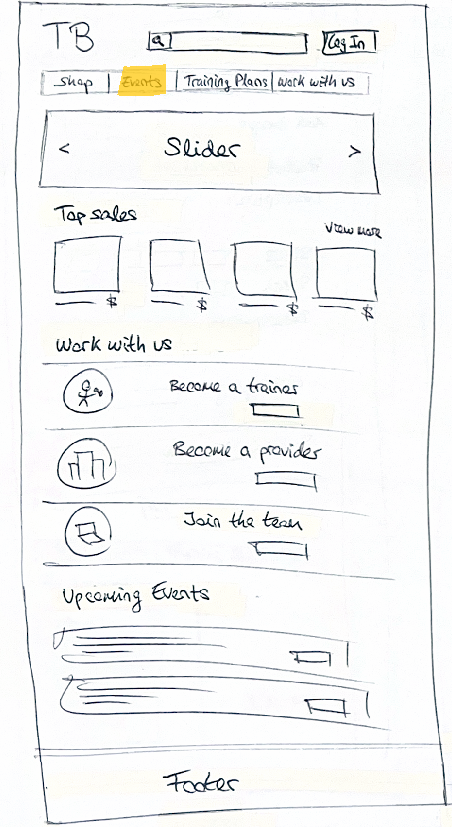 TB
Log In
Shop
Events
Training Plans
Work with us
< Slider >
Top sales
View more
$ $ $ $
Work with us
Become a trainer
Become a provider
Join the team
Upcoming Events
Footer